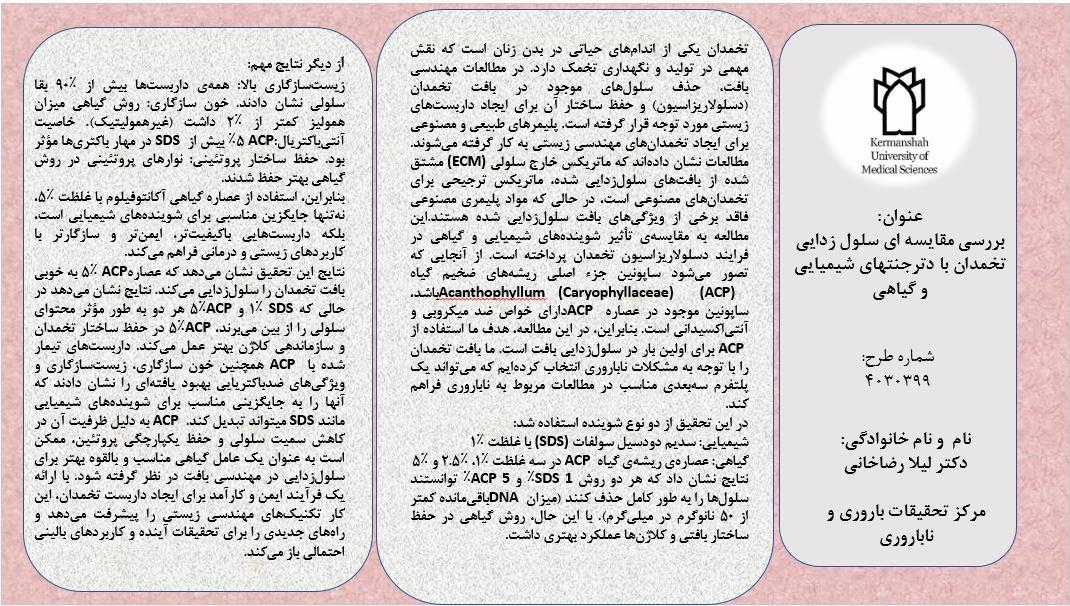 Kermanshah
University of
Medical Sciences
عنوان:
بررسی مقایسه ای سلول زدایی
تخمدان با دترجنتهای شیمیایی
و گیاهی
شماره طرح:
۴۰۳۰۳۹۹
نام و نام خانوادگی:
دکتر لیلا رضاخانی
مرکز تحقیقات باروری و
ناباروری
تخمدان یکی از اندام‌های حیاتی در بدن زنان است که نقش
مهمی در تولید و نگهداری تخمک دارد. در مطالعات مهندسی
بافت، حذف سلول‌های موجود در بافت تخمدان
(دسلولاریزاسیون) و حفظ ساختار آن برای ایجاد داربست‌های
زیستی مورد توجه قرار گرفته است. پلیمرهای طبیعی و مصنوعی
برای ایجاد تخمدان‌های مهندسی زیستی به کار گرفته می‌شوند.
مطالعات نشان داده‌اند که ماتریکس خارج سلولی (ECM) مشتق
شده از بافت‌های سلول‌زدایی شده، ماتریکس ترجیحی برای
تخمدان‌های مصنوعی است، در حالی که مواد پلیمری مصنوعی
فاقد برخی از ویژگی‌های بافت سلول‌زدایی شده هستند.این
مطالعه به مقایسه‌ی تأثیر شوینده‌های شیمیایی و گیاهی در
فرایند دسلولاریزاسیون تخمدان پرداخته است. از آنجایی که
تصور می‌شود ساپونین جزء اصلی ریشه‌های ضخیم گیاه
Acanthophyllum (Caryophyllaceae) (ACP)باشد،
ساپونین موجود در عصاره ACPدارای خواص ضد میکروبی و
آنتی‌اکسیدانی است. بنابراین، در این مطالعه، هدف ما استفاده از
ACP برای اولین بار در سلول‌زدایی بافت است. ما بافت تخمدان
را با توجه به مشکلات ناباروری انتخاب کرده‌ایم که می‌تواند یک
پلتفرم سه‌بعدی مناسب در مطالعات مربوط به ناباروری فراهم
کند.
در این تحقیق از دو نوع شوینده استفاده شد:
شیمیایی: سدیم دودسیل سولفات (SDS) با غلظت ۱٪
گیاهی: عصاره‌ی ریشه‌ی گیاه ACP در سه غلظت ۱٪، ۲.۵٪ و ۵٪
نتایج نشان داد که هر دو روش SDS 1٪ و ACP 5٪ توانستند
سلول‌ها را به طور کامل حذف کنند (میزان DNAباقی‌مانده کمتر
از ۵۰ نانوگرم در میلی‌گرم). با این حال، روش گیاهی در حفظ
ساختار بافتی و کلاژن‌ها عملکرد بهتری داشت.
از دیگر نتایج مهم:
زیست‌سازگاری بالا: همه‌ی داربست‌ها بیش از ۹۰٪ بقا
سلولی نشان دادند. خون سازگاری: روش گیاهی میزان
همولیز کمتر از ۲٪ داشت (غیرهمولیتیک). خاصیت
آنتی‌باکتریال:ACP ۵٪ بیش از SDS در مهار باکتری‌ها مؤثر
بود. حفظ ساختار پروتئینی: نوارهای پروتئینی در روش
گیاهی بهتر حفظ شدند.
بنابراین، استفاده از عصاره گیاهی آکانتوفیلوم با غلظت ۵٪،
نه‌تنها جایگزین مناسبی برای شوینده‌های شیمیایی است،
بلکه داربست‌هایی باکیفیت‌تر، ایمن‌تر و سازگارتر با
کاربردهای زیستی و درمانی فراهم می‌کند.
نتایج این تحقیق نشان می‌دهد که عصارهACP ۵٪ به خوبی
بافت تخمدان را سلول‌زدایی می‌کند. نتایج نشان می‌دهد در
حالی که SDS ۱٪ و ACP۵٪ هر دو به طور مؤثر محتوای
سلولی را از بین می‌برند، ACP۵٪ در حفظ ساختار تخمدان
و سازماندهی کلاژن بهتر عمل می‌کند. داربست‌های تیمار
شده با ACP همچنین خون سازگاری، زیست‌سازگاری و
ویژگی‌های ضدباکتریایی بهبود یافته‌ای را نشان دادند که
آنها را به جایگزینی مناسب برای شوینده‌های شیمیایی
مانند SDS میتواند تبدیل کند. ACP به دلیل ظرفیت آن در
کاهش سمیت سلولی و حفظ یکپارچگی پروتئین، ممکن
است به عنوان یک عامل گیاهی مناسب و بالقوه بهتر برای
سلول‌زدایی در مهندسی بافت در نظر گرفته شود. با ارائه
یک فرآیند ایمن و کارآمد برای ایجاد داربست تخمدان، این
کار تکنیک‌های مهندسی زیستی را پیشرفت می‌دهد و
راه‌های جدیدی را برای تحقیقات آینده و کاربردهای بالینی
احتمالی باز می‌کند.